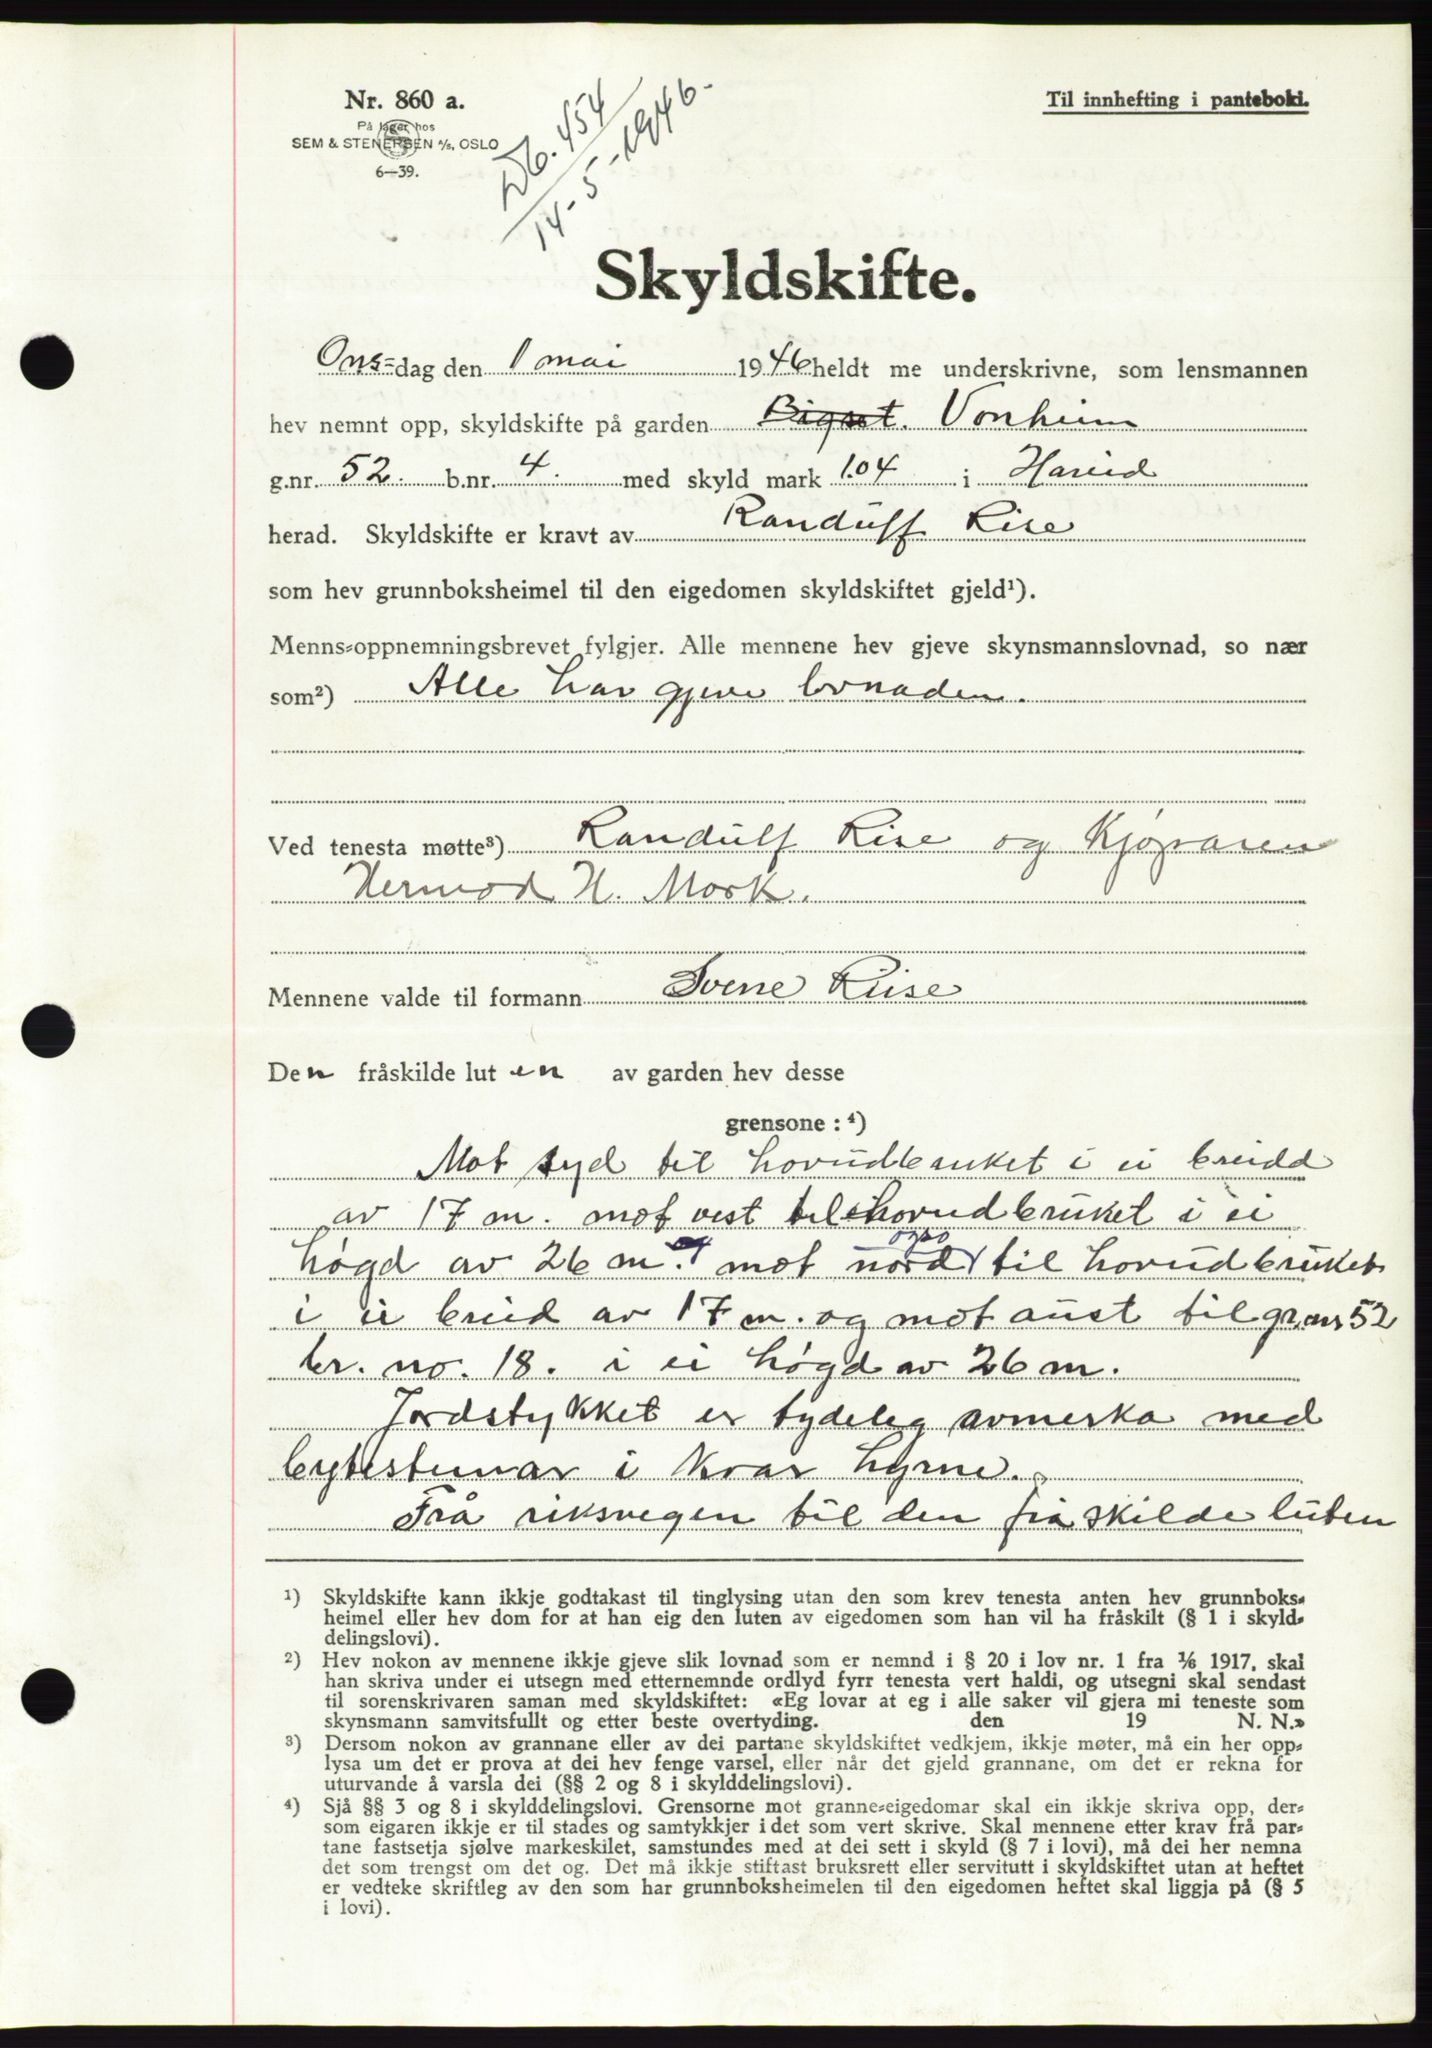 Nr. 860 a.
På lager hos
SEM & STENERSEN A/S, OSLO
6—39.
Db. 454
14-5-1946.
Til innhefting i panteboki.
Skyldskifte.
Ons-dag den 1 mai 1946 heldt me underskrivne, som lensmannen
hev nemnt opp, skyldskifte på garden Bigset. Vonheim
g.nr. 52. b.nr. 4. med skyld mark 1.04 i Hareid
herad. Skyldskifte er kravt av Randulf Rise
som hev grunnboksheimel til den eigedomen skyldskiftet gjeld¹).
Menns-oppnemningsbrevet fylgjer. Alle mennene hev gjeve skynsmannslovnad, so nær
som²) Alle har gjeve lovnaden.
Ved tenesta møtte³) Randulf Rise og Kjøparen
Hermod H. Mork.
Mennene valde til formann Sverre Riise
Den fråskilde luten av garden hev desse
grensone : ⁴)
Mot syd til hovudbruket i ei breidd
av 17 m. mot vest til hovudbruket i ei
høgd av 26 m. og mot nord også til hovudbruket
i ei breid av 17 m. og mot aust til gr. nr 52
br. no. 18. i ei høgd av 26 m.
Jordstykket er tydeleg avmerka med
bytesteinar i kvar hyrne.
Frå riksvegen til den fråskilde luten
¹) Skyldskifte kann ikkje godtakast til tinglysing utan den som krev tenesta anten hev grunnboks-
heimel eller hev dom for at han eig den luten av eigedomen som han vil ha fråskilt (§ 1 i skyld-
delingslovi).
²) Hev nokon av mennene ikkje gjeve slik lovnad som er nemnd i § 20 i lov nr. 1 fra 1/6 1917, skal
han skriva under ei utsegn med etternemnde ordlyd fyrr tenesta vert haldi, og utsegni skal sendast
til sorenskrivaren saman med skyldskiftet: «Eg lovar at eg i alle saker vil gjera mi teneste som
skynsmann samvitsfullt og etter beste overtyding. den 19 N. N.»
³) Dersom nokon av grannane eller av dei partane skyldskiftet vedkjem, ikkje møter, må ein her opp-
lysa um det er prova at dei hev fenge varsel, eller når det gjeld grannane, om det er rekna for
uturvande å varsla dei (§§ 2 og 8 i skylddelingslovi).
⁴) Sjå §§ 3 og 8 i skylddelingslovi. Grensorne mot granne-eigedomar skal ein ikkje skriva opp, der-
som eigaren ikkje er til stades og samtykkjer i det som vert skrive. Skal mennene etter krav frå par-
tane fastsetja sjølve markeskilet, samstundes med at dei sett i skyld (§ 7 i lovi), må dei her nemna
det som trengst om det og. Det må ikkje stiftast bruksrett eller servitutt i skyldskiftet utan at heftet
er vedteke skriftleg av den som har grunnboksheimelen til den eigedomen heftet skal liggja på (§ 5
i lovi).